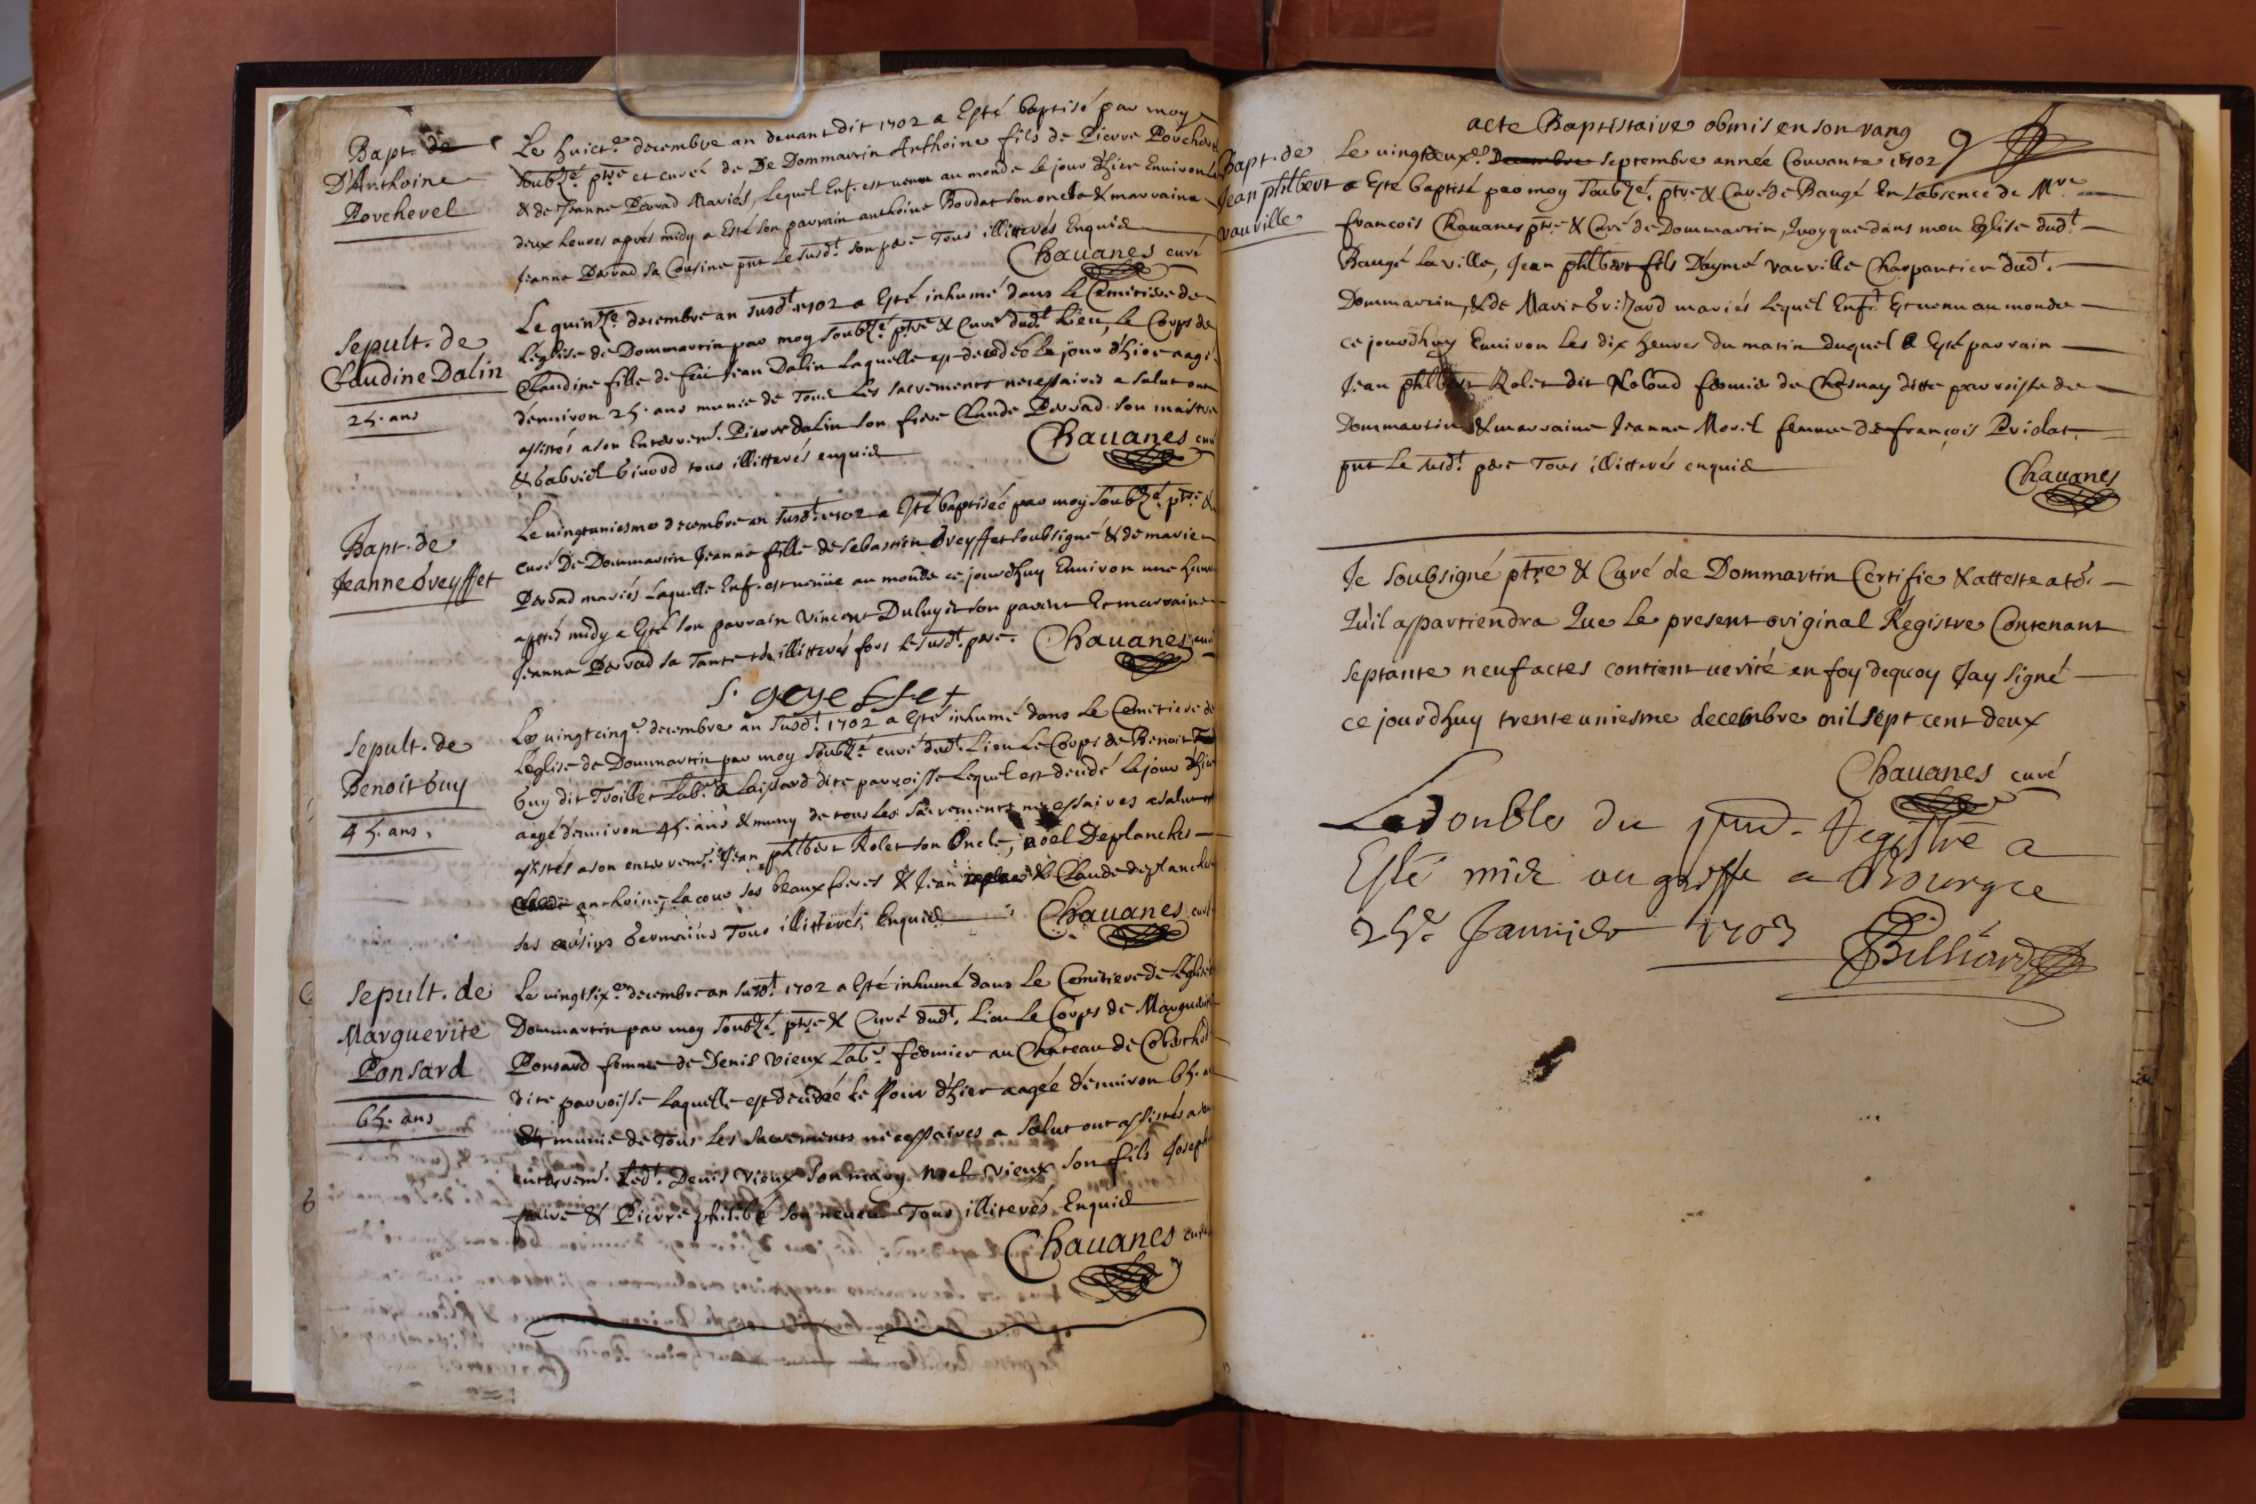 Bapt. de
D'Anthoine
Porchevel
Le huict.e decembre an devant dit 1702 a Esté baptisé par moy
soubz.é ptre et curé de De Dommartin Anthoine fils de Pierre
& de Jeanne Perrad Mariés, Lequel Enf. est venu au monde Le jour d'hier Environ
deux heures aprés midy a Esté son parrain anthoine Bordat son oncle & marraine
Jeanne Perrad sa Cousine pnt Le susd.t son pere Tous illitterés Enquis
Chauanes curé
Sepult. de
Claudine Dalin
25. ans
Le quinz.e decembre an susd.t 1702 a Esté inhumé dans Le Cemitiere de
L'eglise de Dommartin par moy soubz.é ptre & Curé dud.t Lieu, Le Corps de
Claudine fille de feu Jean Dalin Laquelle est decedée Le jour d'hier aagé
d'enuiron 25. ans munie de Tous Les sacrements necessaires a salut ont
assistés a son Enterrem.t Pierre Dalin son frere Claude Perrad son maistre
& Gabriel Givord tous illitterés enquis
Chauanes curé
Bapt. de
Jeanne Greyffet
Le vingtuniesme decembre an susd.t 1702 a Esté baptisée par moy Soubz.é ptre &
curé De Dommartin Jeanne fille de Sebastien Greyffet soubsigné & de marie
Perrad mariés Laquelle Enf. est venüe au monde ce jourd'huy Enuiron une heure
apprés midy a Esté son parrain vincent Duluy son parent Et marraine
Jeanne Perrad sa Tante illitterés fors Le susd.t pere.
Chauanes curé
Sepult. de
Benoit Guy
45. ans.
Le vingtcinq.e decembre an susd.t 1702 a Esté inhumé dans Le Cemitiere de
L'eglise de Dommartin par moy Soubz.é curé dud.t Lieu Le Corps de Benoit
Guy dit Troillet Lab.r a Laissard dite parroisse Lequel est decedé Le jour d'hier
aagé d'enuiron 45. ans & muny de tous Les sacrements necessaires a salut
assistés a son enterrem.t Jean philbert Rolet son Oncle, noel Deplanches
anthoine Lacour ses beaux freres & Jean & Claude deplanches
ses cousins Germains Tous illitterés, Enquis
Chauanes curé
Sepult. de
Marguerite
Ponsard
65. ans
Le vingtsix.e decembre an susd.t 1702 a Esté inhumé dans Le Cemitiere de L'eglise
Dommartin par moy Soubz.é ptre & Curé dud.t Lieu Le Corps de Marguerite
Ponsard femme de Denis Vieux Lab.r fermier au Chateau de
dite parroisse Laquelle est decedée Le Jour d'hier aagée d'enuiron 65.
munie de Tous Les sacrements necessaires a Salut ont assistés a
enterrem.t Led.t Denis Vieux son mary Noel Vieux son fils Joseph
& Pierre philibé son neueu Tous illiterés Enquis
Chauanes curé
acte Baptistaire obmis en son rang
Bapt. de
Jean philbert
vauville
Le vingtdeux.e Decembre Septembre année Courante 1702
a Esté baptisé par moy Soubz.é ptre & Curé de Baugé En L'absence de M.re
francois Chauanes ptre & Curé de Dommartin, Quoyque dans mon Eglise dud.t
Baugé La ville, Jean philbert fils D'aymé vauville Charpantier dud.t
Dommartin, & de Marie Grizard mariés Lequel Enf.t Est venu au monde
ce jourd'huy Enuiron Les dix heures du matin duquel a Esté parrain
Jean philbert Rolet dit Noloud fermier de Chesnay ditte parroisse de
Dommartin & marraine Jeanne Morel femme de françois Pridat,
pnt Le susd.t pere Tous illitterés enquis
Chauanes
Je soubsigné ptre & Curé de Dommartin Certifie & atteste a to.s
Qu'il appartiendra Que Le present original Registre Contenant
septante neuf actes contient verité en foy dequoy Jay signé
ce jourd'huy trente uniesme decembre mil sept cent deux
Chauanes curé
Le double du pnt. Registre a
Esté mis au greffe a Bourg ce
25.e Januier 1703
Billiard